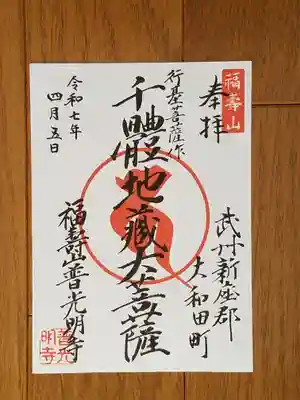 福壽山
奉拝
武州新座郡
大和田町
行基菩薩作
千體地藏大菩薩
福壽山普光明寺
普光明寺
令和七年
四月五日